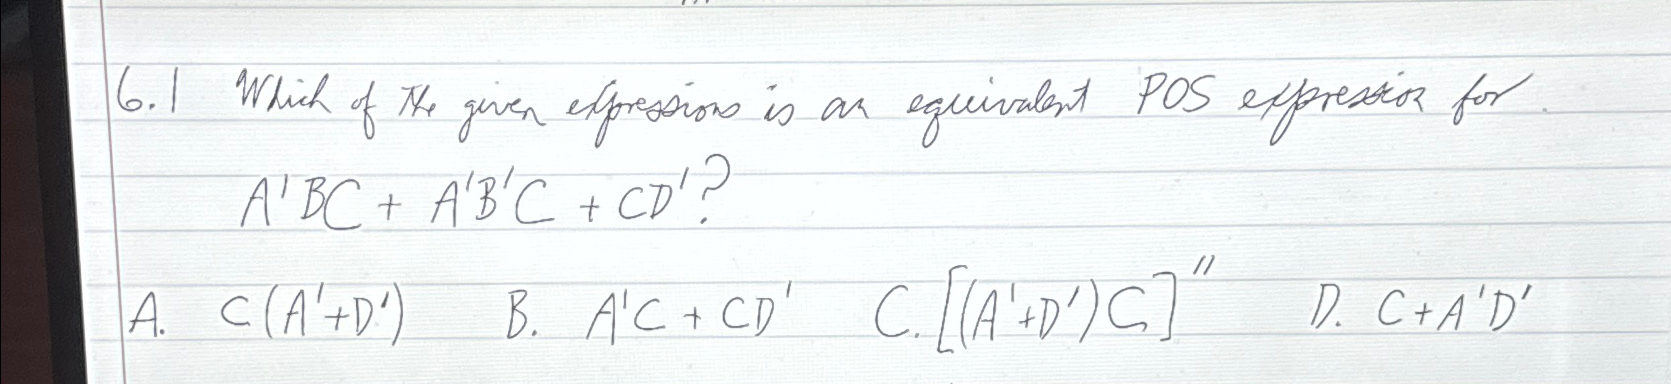 6.1 Which of the given expressions is an equivalent POS expression for
A'BC + A'B'C + CD'?
A. C(A'+D') B. A'C + CD' C. [(A'+D')C]'' D. C+A'D'